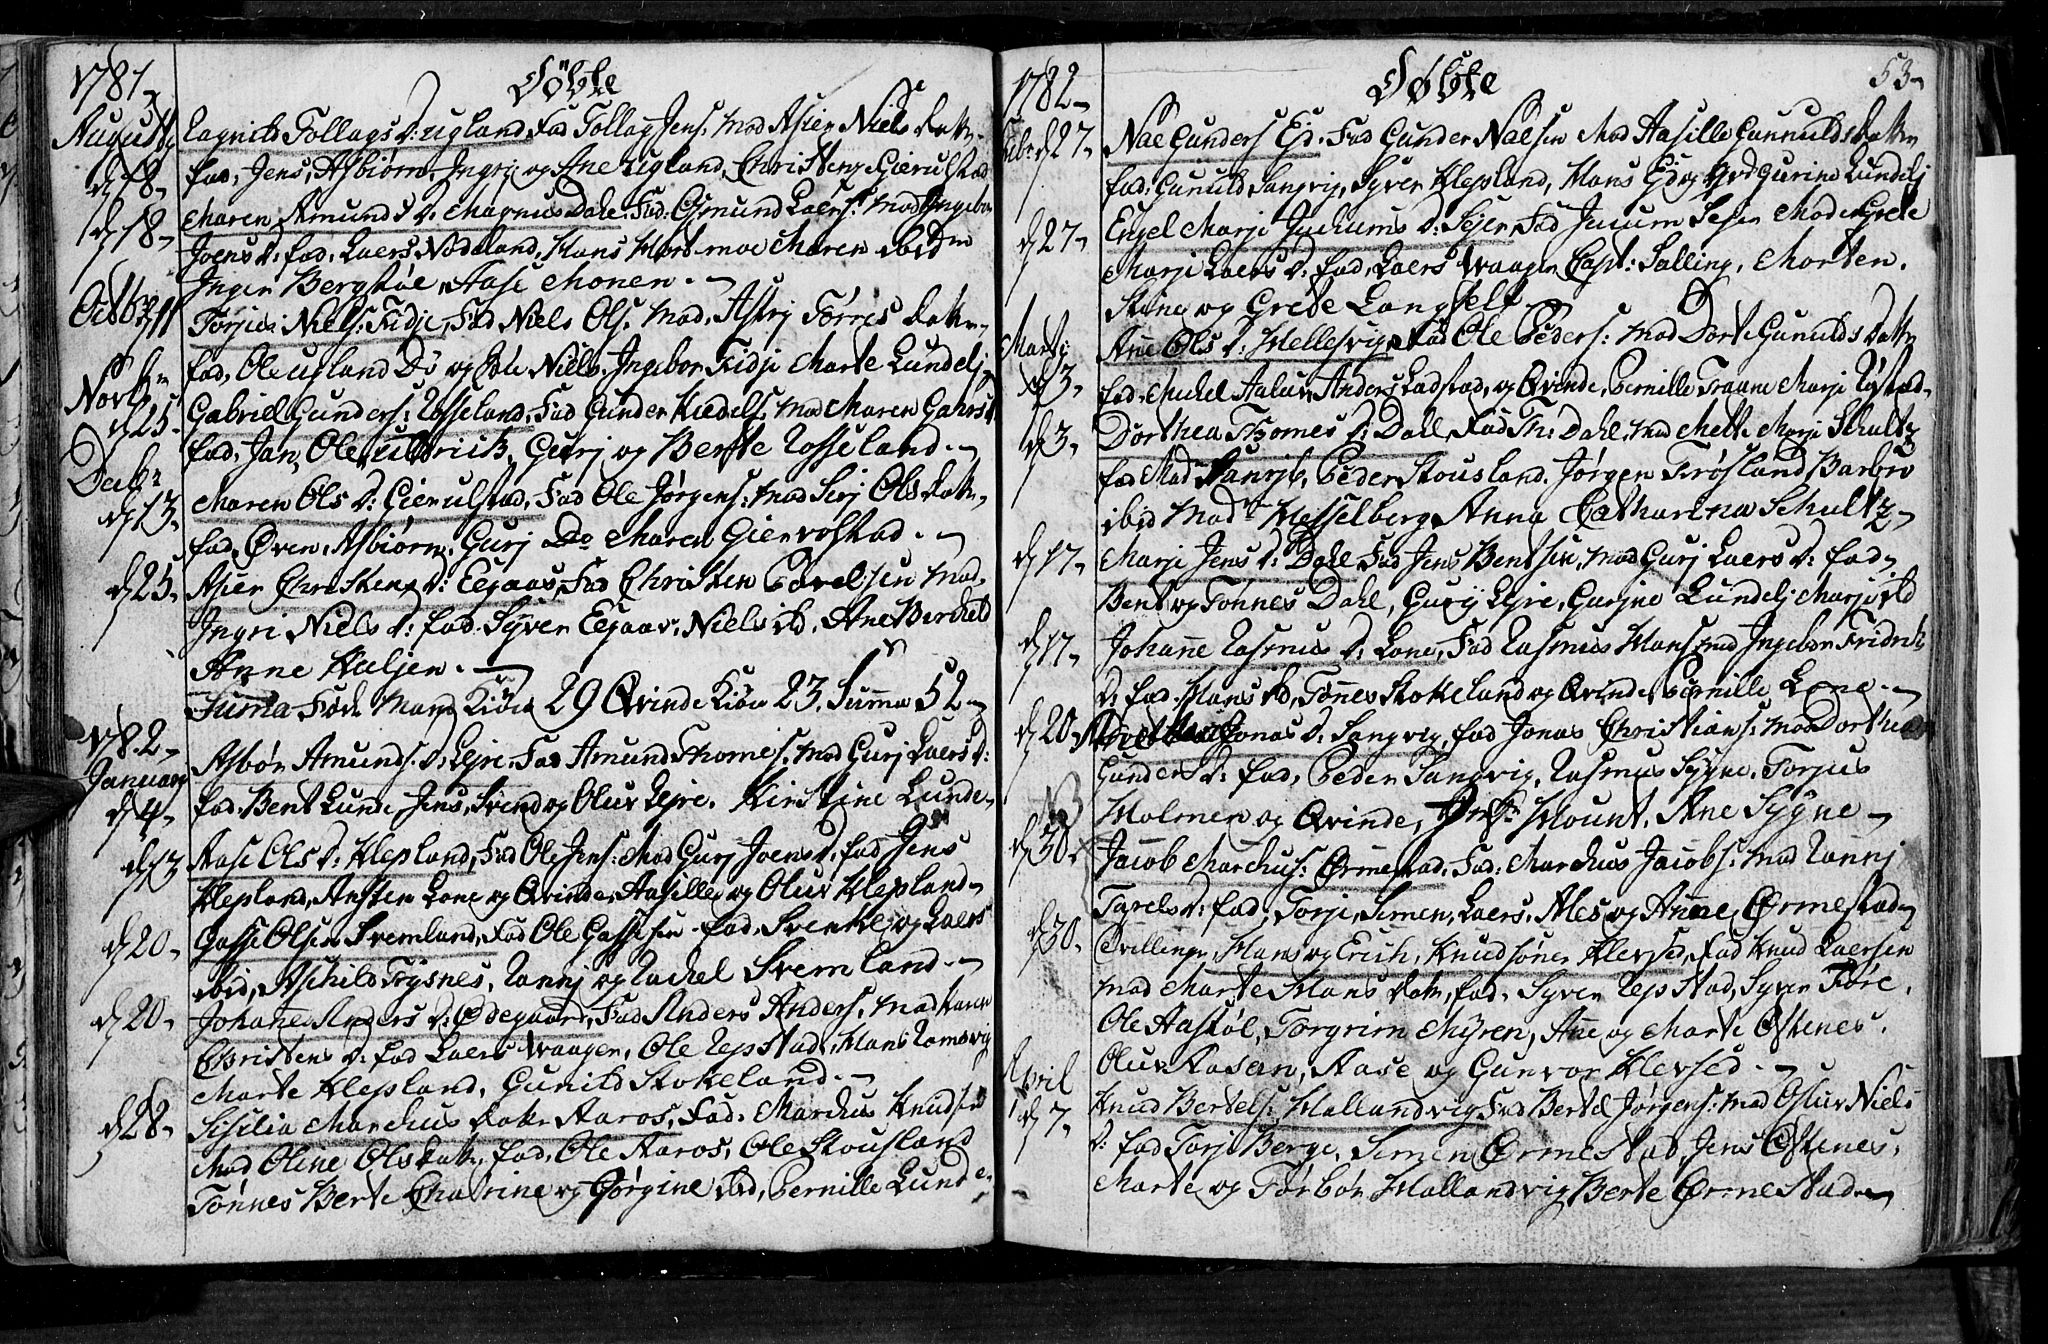 1781
Döbte
Augusty
d 18
Ragnild Tollags D: Ugland, Fad Tollag Jens: Mad Asier Niels Datr
fad, Jens, Asbiørn, Ingrj og Ane Ugland, Christens Gierulstad
d 18
Maren Amunds D: Magnus Dahl. Fad: Osmund Laers: Mad Ingebor
Joens D: fad, Laers Nodeland, Hans Hort moe Maren ibidm
Inger Bergstøe, Aase Monen.
Octbr
d 11
Torjus Niels: Fidje, Fad Niels Ols. Mad. Astrj Torres Datr
fad, Ole Ugland Do og Niels, Ingebor Fidje Marte Lundelj
Novbr
d 25
Gabriel Gunders: Rosseland, Fad Gunder Kiedels. Mad Maren Gabrs D
fad, Jan, Ole, Ulrich, Gurj og Berte Rosseland.
Decbr
d 13
Maren Ols D: Gierulstad, Fad Ole Jørgens: Mad Sirj Ols Datr
fad, Øven, Asbiørn, Gurj Do Maren Giervolstad.
d 25
Asier Christens D: Eegaas, Fad Christen Povelsen Mad.
Ingri Niels D: fad. Syver Eegaas, Niels ibd, Ane Berdal
Anne Haljen.
Summa Føde Mand Kiön 29 Qvinde Kiön 23. Summa 52
1782
January
d 4
Asbør Amunds. D: Lejre. Fad Amund Thomes. Mad Gurj Laers D:
fad. Bent Lunde Jens, Svend og Oluv Lejre. Kirstine Lunde
d 13
Aase Ols D: Klepland, Fad Ole Jens: Mad Gurj Joens D. fad Jens
Klepland, Ansten Lone og Qvinde, Aasille og Oluv Klepland
d 20
Gasse Olsen Svemland, Fad Ole Gassesen. fad. Svenke og Laers
ibid, Aschild Frysnes, Rannj og Rachel Svemland.
d 20
Johane Anders D: Ødegaard, Fad Anders Anders. Mad Karen
Christens D: fad Laers Waagen, Ole Repstad, Hans Romsvig
Marte Klepland, Gunild Stokeland.
d 28
Sisilia Marchus Datr Aaros, Fad: Marchus Knudsen
Mad Oline Ols Datr, fad, Ole Aaros, Ole Stousland
Tönnes Berte Chatrine og Gørgine ibd, Pernille Lunde.
53
1782
Døbte
Febr d 27
Nae Gunders Ejd. Fad Gunder Naesen Mad Aasille Gunnulds Datr
fad, Gunild Sangvig, Syver Klepland, Hans Ejd og Gurine Lundelj
d 27
Engel Marje Juchums D: Sejer, Fad Jucum Sejer Moder Grete
Marje Laers D: fad, Laers Waagen Capt: Salling, Morten.
Stine og Grete Langfelt
Marty
d 3
Ane Ols D: Hellesvig, Fad Ole Peders: Mad Dorte Gunulds Datr
fad. Michel Aalur Anders Ladstad, og Qvinde, Pernille Fraane Marje Rystad.
d 3
Dorthea Thomes D: Dahl, Fad Th: Dahl, Mad Mette Marje Schultz
fad Mad Peder Stousland. Jørgen Frøsland Barbro
ibid Madm Hesselberg Anna Catharina Schultz
d 17
Marje Jens D: Dahl Fad Jens Bentsen, Mad Gurj Laers D: fad
Bent og Tönnes Dahl, Gurij Lejre, Gurine Lundelj Marje ibd
d 17
Johane Rasmus D: Lone, Fad Rasmus Hans Mad Ingebor Fridrik
D: fad. Hans ibd, Tønnes Stokeland og Qvinde, Pernille Lone.
d 20
Jonas D: Sangvig, fad Jonas Christians: Mad Dorthea
Gunders D: fad, Peder Sangvig, Rasmus Sygne, Torjus
Holmen og Qvinde, Mount, Ane Sygne
d 30
Jacob Marchus: Ørmestad, Fad: Marchus Jacobs: Mad Rannj
Tarels D: fad, Torje, Simen, Laers, Ales og Anne, Ørmestad
d 30
Tvillinger, Hans og Erich, Knudsøner Klevsed, fad Knud Laersen
Mad Marte Hans Datr, fad. Syver Repstad, Syver Føre.
Ole Aastøl, Torgrim Myren, Ane og Marte Østenes.
Oluv Aasen, Aase og Gunvor Klevsed.
April
d 7
Knud Bertels: Hallandvig Fad Bertel Jørgens: Mad Oluv Niels
D: fad Torje Berge, Simen Ørmestad, Jens Østenes.
Marte og Torbør Hallandvig Berte Ørmestad